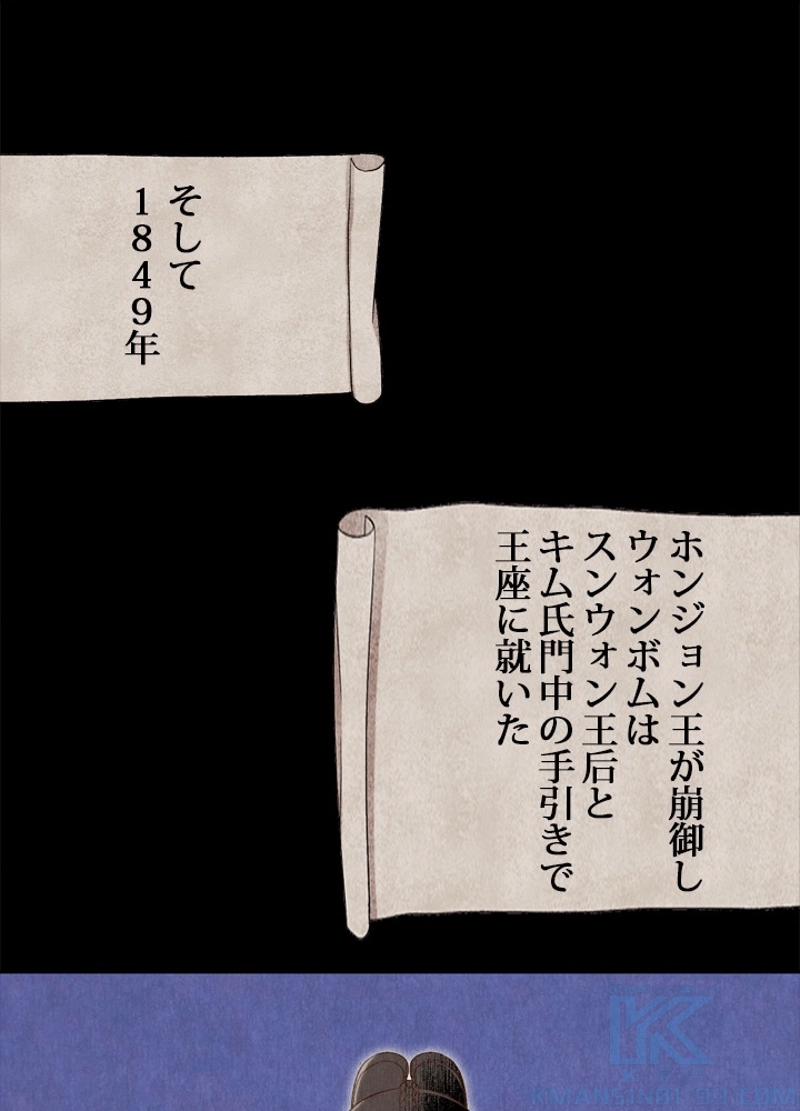 そして
1849年
ホンジョン王が崩御し
ウォンボムは
スンウォン王后と
キム氏門中の手引きで
王座に就いた
K